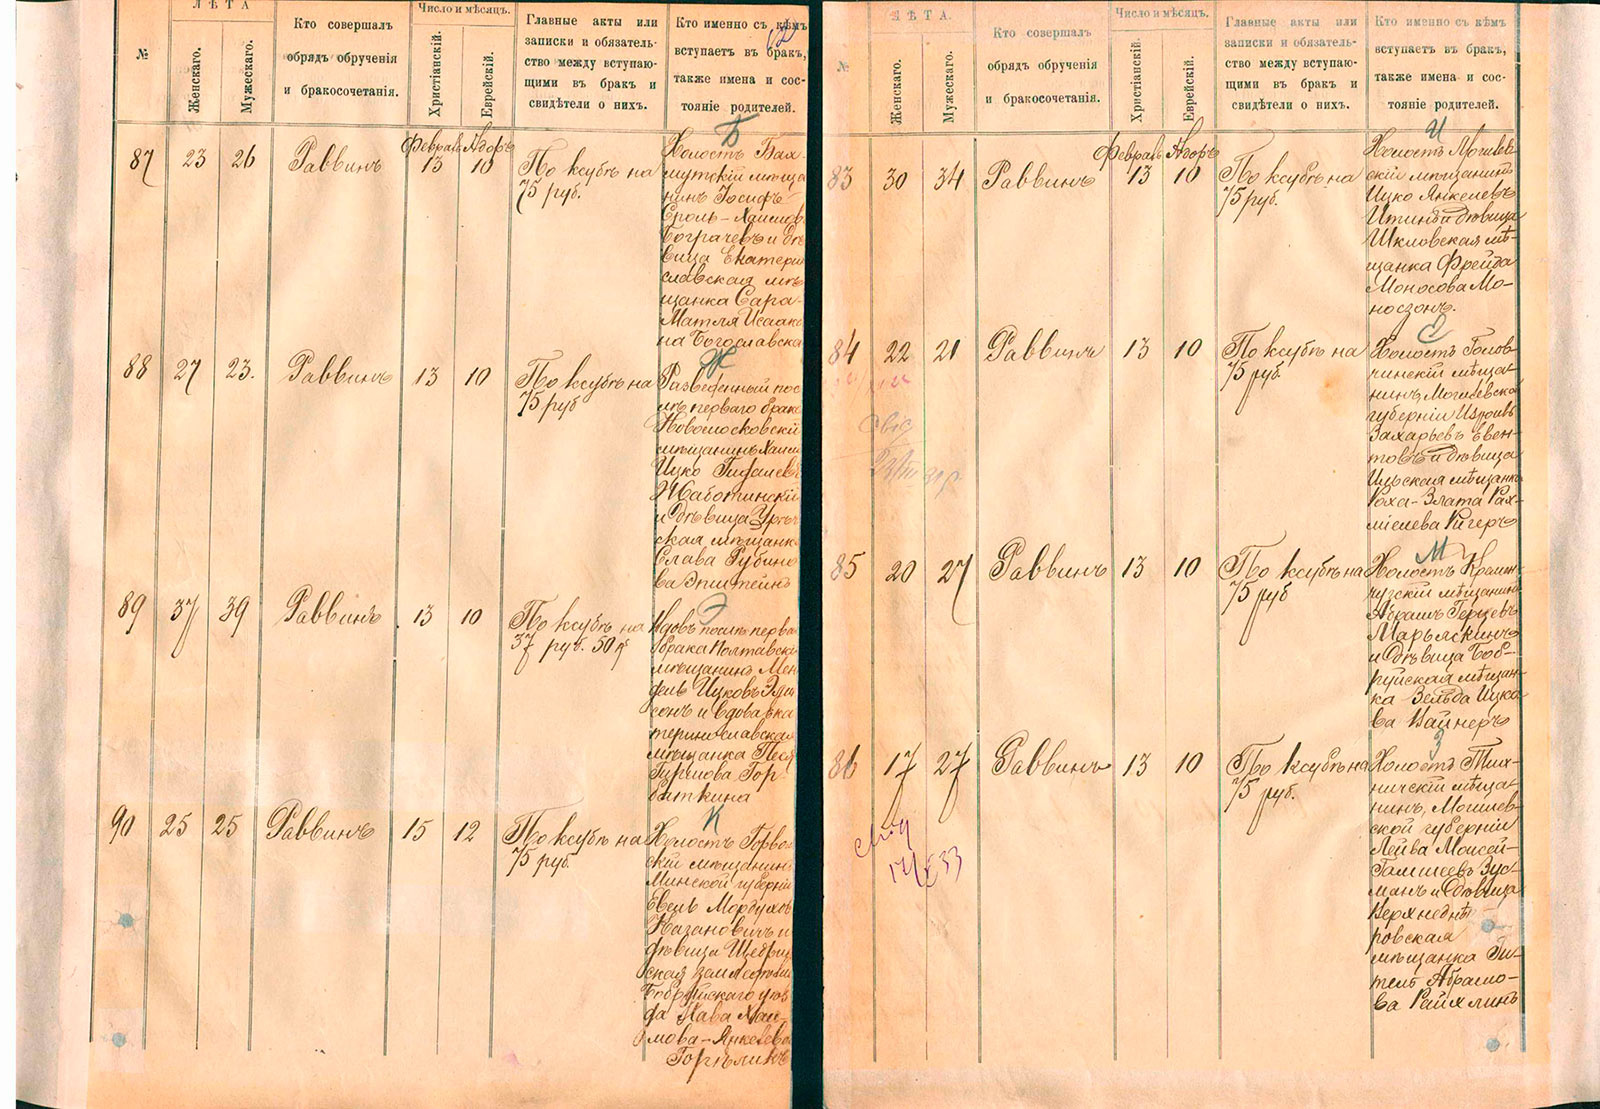 №
ЛѢТА
Женскаго.
Мужескаго.
Кто совершалъ
обрядъ обрученія
и бракосочетанія.
Число и мѣсяцъ.
Христіанскій.
Еврейскій.
Главные акты или
записки и обязатель-
ство между вступаю-
щими въ бракъ и
свидѣтели о нихъ.
Кто именно съ кѣмъ
вступаетъ въ бракъ,
также имена и сос-
тояніе родителей.
Б
87 23 26 Раввинъ
Февраль Адоръ
13 10
По ксубѣ на
75 руб.
Холостъ Бах-
мутскій мѣща
нинъ Іосифъ
Сроль-Хаимов
Бограчевъ и дѣ
вица Екатери
славская мѣ
щанка Сара-
Матля Исаако
на Богославска
Ж
88 27 23. Раввинъ 13 10
По ксубѣ на
75 руб
Разведенный пос
лѣ перваго брака
Новомосковскій
мѣщанинъ Хаим
Ицко
Жаботинскій
и дѣвица
ская мѣщанк
Слава Рубино
ва Эпштейнъ
Э
89 37 39 Раввинъ 13 10
По ксубѣ на
37 руб. 50 к
Вдовъ послѣ перва
брака Полтавск
мѣщанинъ Мен
дель Ицковъ
сонъ и вдова Ека
теринославская
мѣщанка Песя
Гиршова Гор-
баткина
К
90 25 25 Раввинъ 15 12
По ксубѣ на
75 руб.
Холостъ Горвол
скій мѣщанин
Минской губерніи
Евель Мордухов
Казановичъ и
дѣвица Щедрин
ская
Бобруйскаго уѣз
да Хава Хаи-
мова-Янкелева
Горѣликъ
№
ЛѢТА.
Женскаго.
Мужескаго.
Кто совершалъ
обрядъ обрученія
и бракосочетанія.
Число и мѣсяцъ.
Христіанскій.
Еврейскій.
Главные акты или
записки и обязатель-
ство между вступаю-
щими въ бракъ и
свидѣтели о нихъ.
Кто именно съ кѣмъ
вступаетъ въ бракъ,
также имена и сос-
тояніе родителей.
И
83 30 34 Раввинъ
Февраль Адоръ
13 10
По ксубѣ на
75 руб.
Холостъ Могилев
скій мѣщанинъ
Ицко Янкелевъ
Итинъ и дѣвица
Шкловская мѣ-
щанка Фрейда
Моносова Мо-
носзонъ.
84 22 21 Раввинъ 13 10
По ксубѣ на
75 руб.
Холостъ Голов-
чинскій мѣща-
нинъ Могилевской
губерніи
Захарьевъ Евен-
товъ и дѣвица
мѣщанка
Роха-Злата Рах-
міелева Ригеръ
свид
М
85 20 27 Раввинъ 13 10
По ксубѣ на
75 руб
Холостъ Кремен-
чугскій мѣщанинъ
Абрамъ Герцевъ
Марьяскинъ
и дѣвица Боб-
руйская мѣщан-
ка Зельда Ицко
ва Вайнеръ
З
86 17 27 Раввинъ 13 10
По ксубѣ на
75 руб.
Холостъ
мѣща-
нинъ, Могилев-
ской губерніи
Лейва Моисей-
Гамшеевъ Зус-
манъ и дѣвица
Верхнеднѣ
ровская
мѣщанка Ги-
тель Абрамо-
ва Райхлинъ